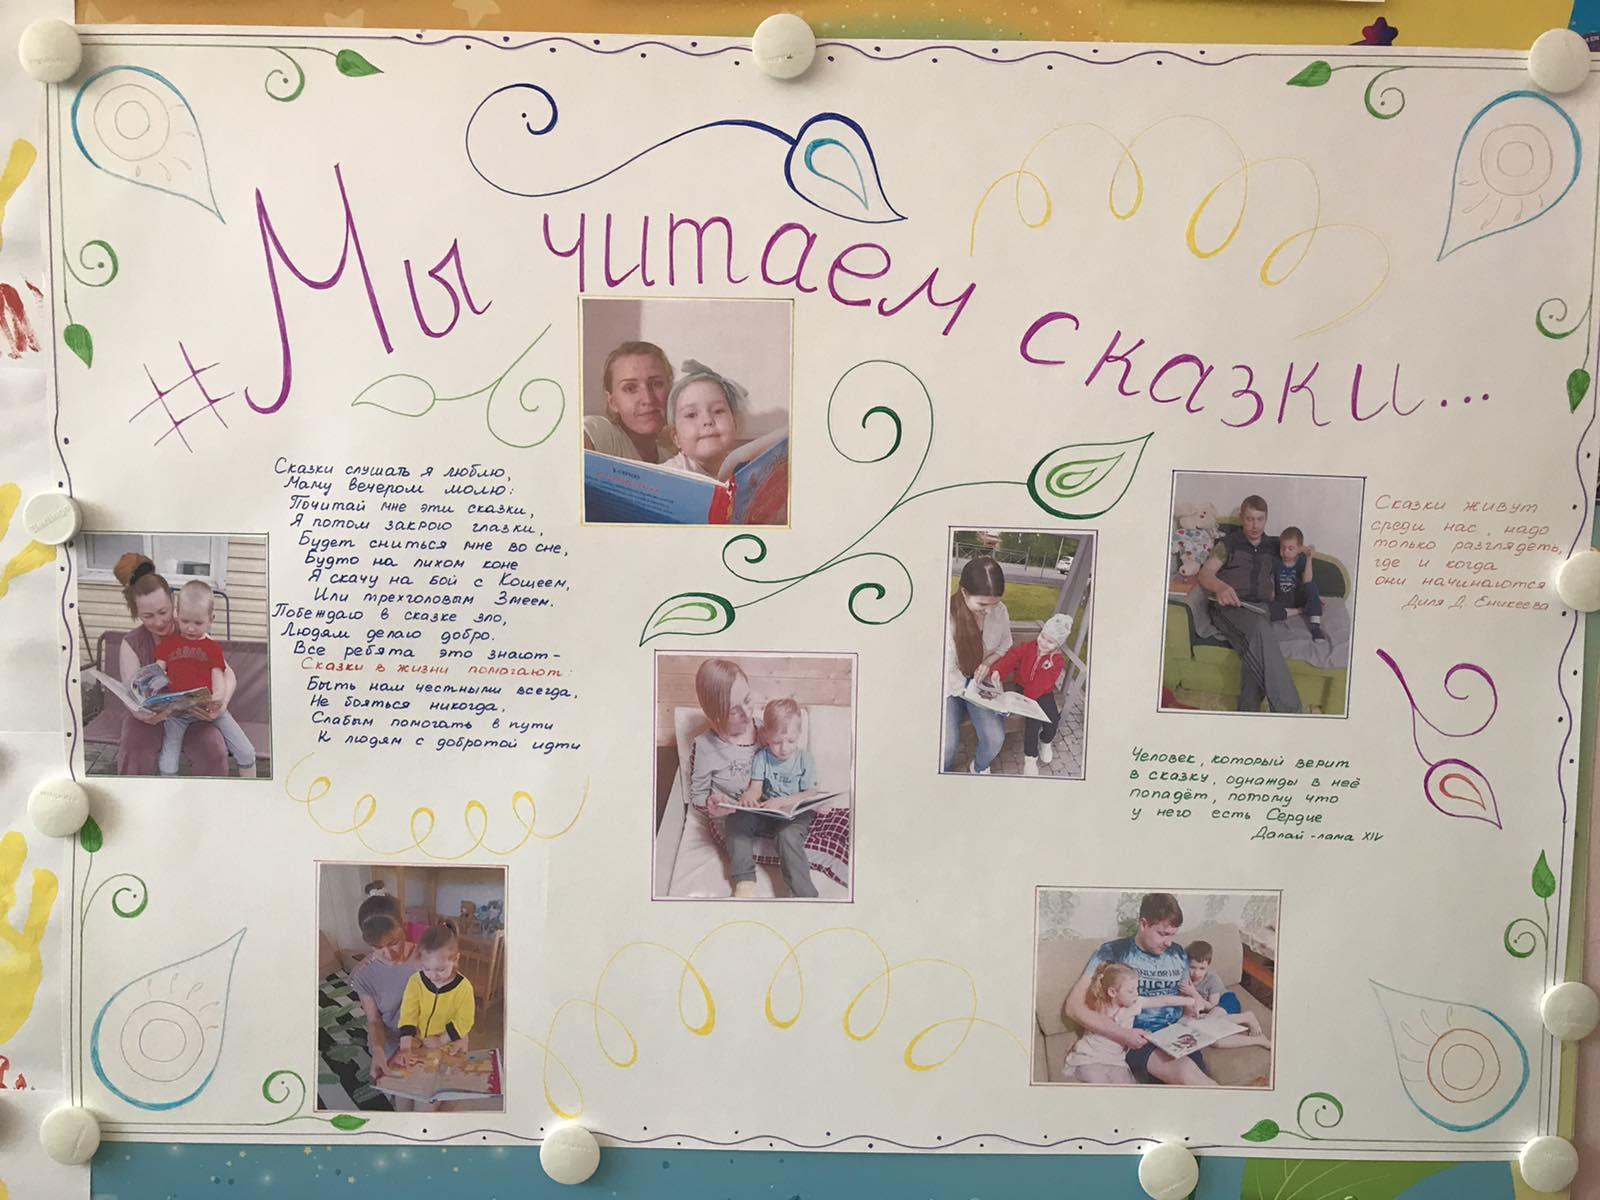 #Мы читаем сказки...
Сказки слушать я люблю,
Маму вечером молю:
Почитай мне эти сказки,
Я потом закрою глазки,
Будет сниться мне во сне,
Будто на лихом коне
Я скачу на бой с Кощеем,
Или трехголовым Змеем.
Побеждаю в сказке зло,
Людям делаю добро.
Все ребята это знают-
Сказки в жизни помогают:
Быть нам честными всегда,
Не бояться никогда,
Слабым помогать в пути
К людям с добротой идти
Сказки живут
среди нас, надо
только разглядеть,
где и когда
они начинаются
Диля Д. Еникеева
Человек, который верит
в сказку, однажды в неё
попадёт, потому что
у него есть Сердце
Далай-лама XIV